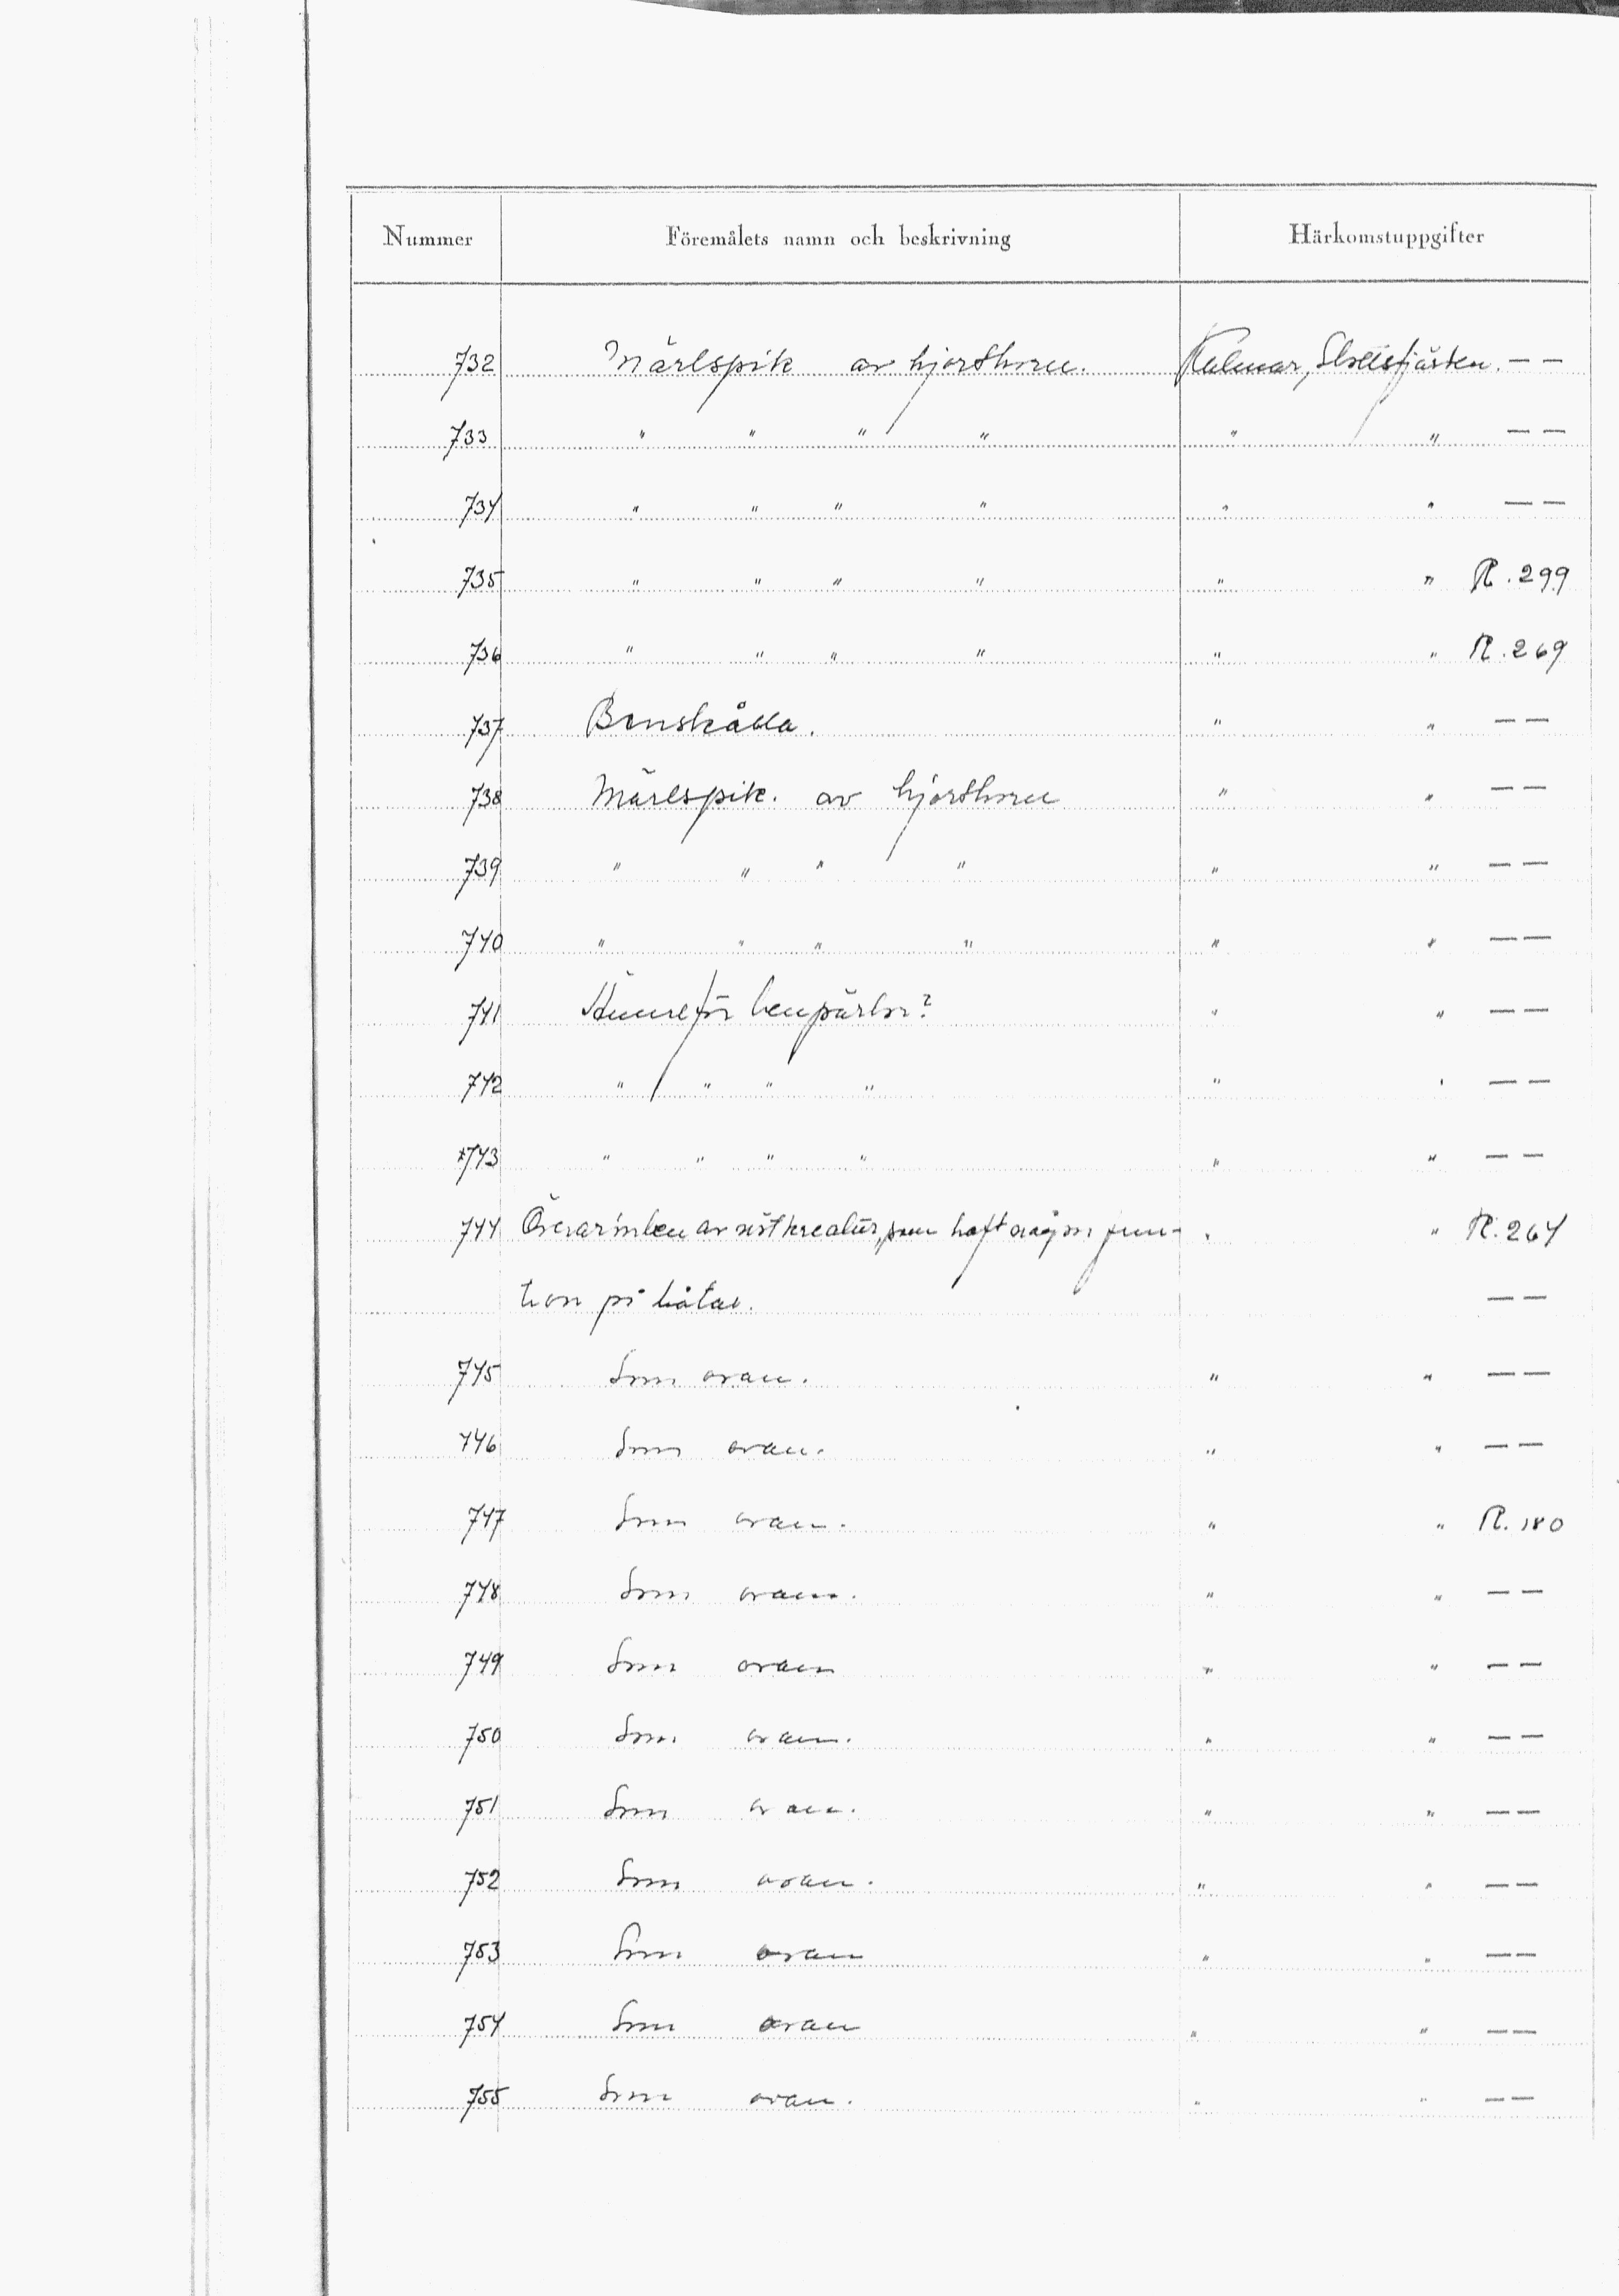 Nummer Föremålets namn och beskrivning Härkomstuppgifter
732 Märlspik av hjorthorn. Kalmar, Slottsfjärden. — —
733 " " " " " " — —
734 " " " " " " — —
735 " " " " " " R. 299
736 " " " " " " R. 269
737 Benskålla. " " — —
738 Märlspik. av hjorthorn " " — —
739 " " " " " " — —
740 " " " " " " — —
741 Ämne för benpärlor? " " — —
742 " " " " " " — —
743 " " " " " " — —
744 av nötkreatur, som haft någon funk- " " R. 264
tion på båtar. — —
745 Som ovan. " " — —
746 Som ovan. " " — —
747 Som ovan. " " R. 180
748 Som ovan. " " — —
749 Som ovan " " — —
750 Som ovan. " " — —
751 Som ovan. " " — —
752 Som ovan. " " — —
753 Som ovan " " — —
754 Som ovan " " — —
755 Som ovan. " " — —